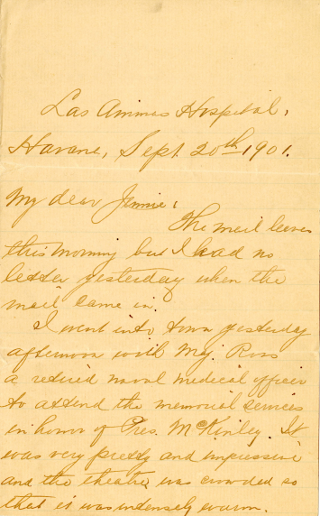 Las Animas Hospital,
Havana, Sept. 20th 1901.
My dear Jennie:
The mail leaves
this morning but I had no
letter yesterday when the
mail came in.
I went into town yesterday
afternoon with Maj. Ross
a retired naval medical officer
to attend the memorial services
in honor of Pres. McKinley. It
was very pretty and impressive
and the theatre was crowded so
that it was intensely warm.